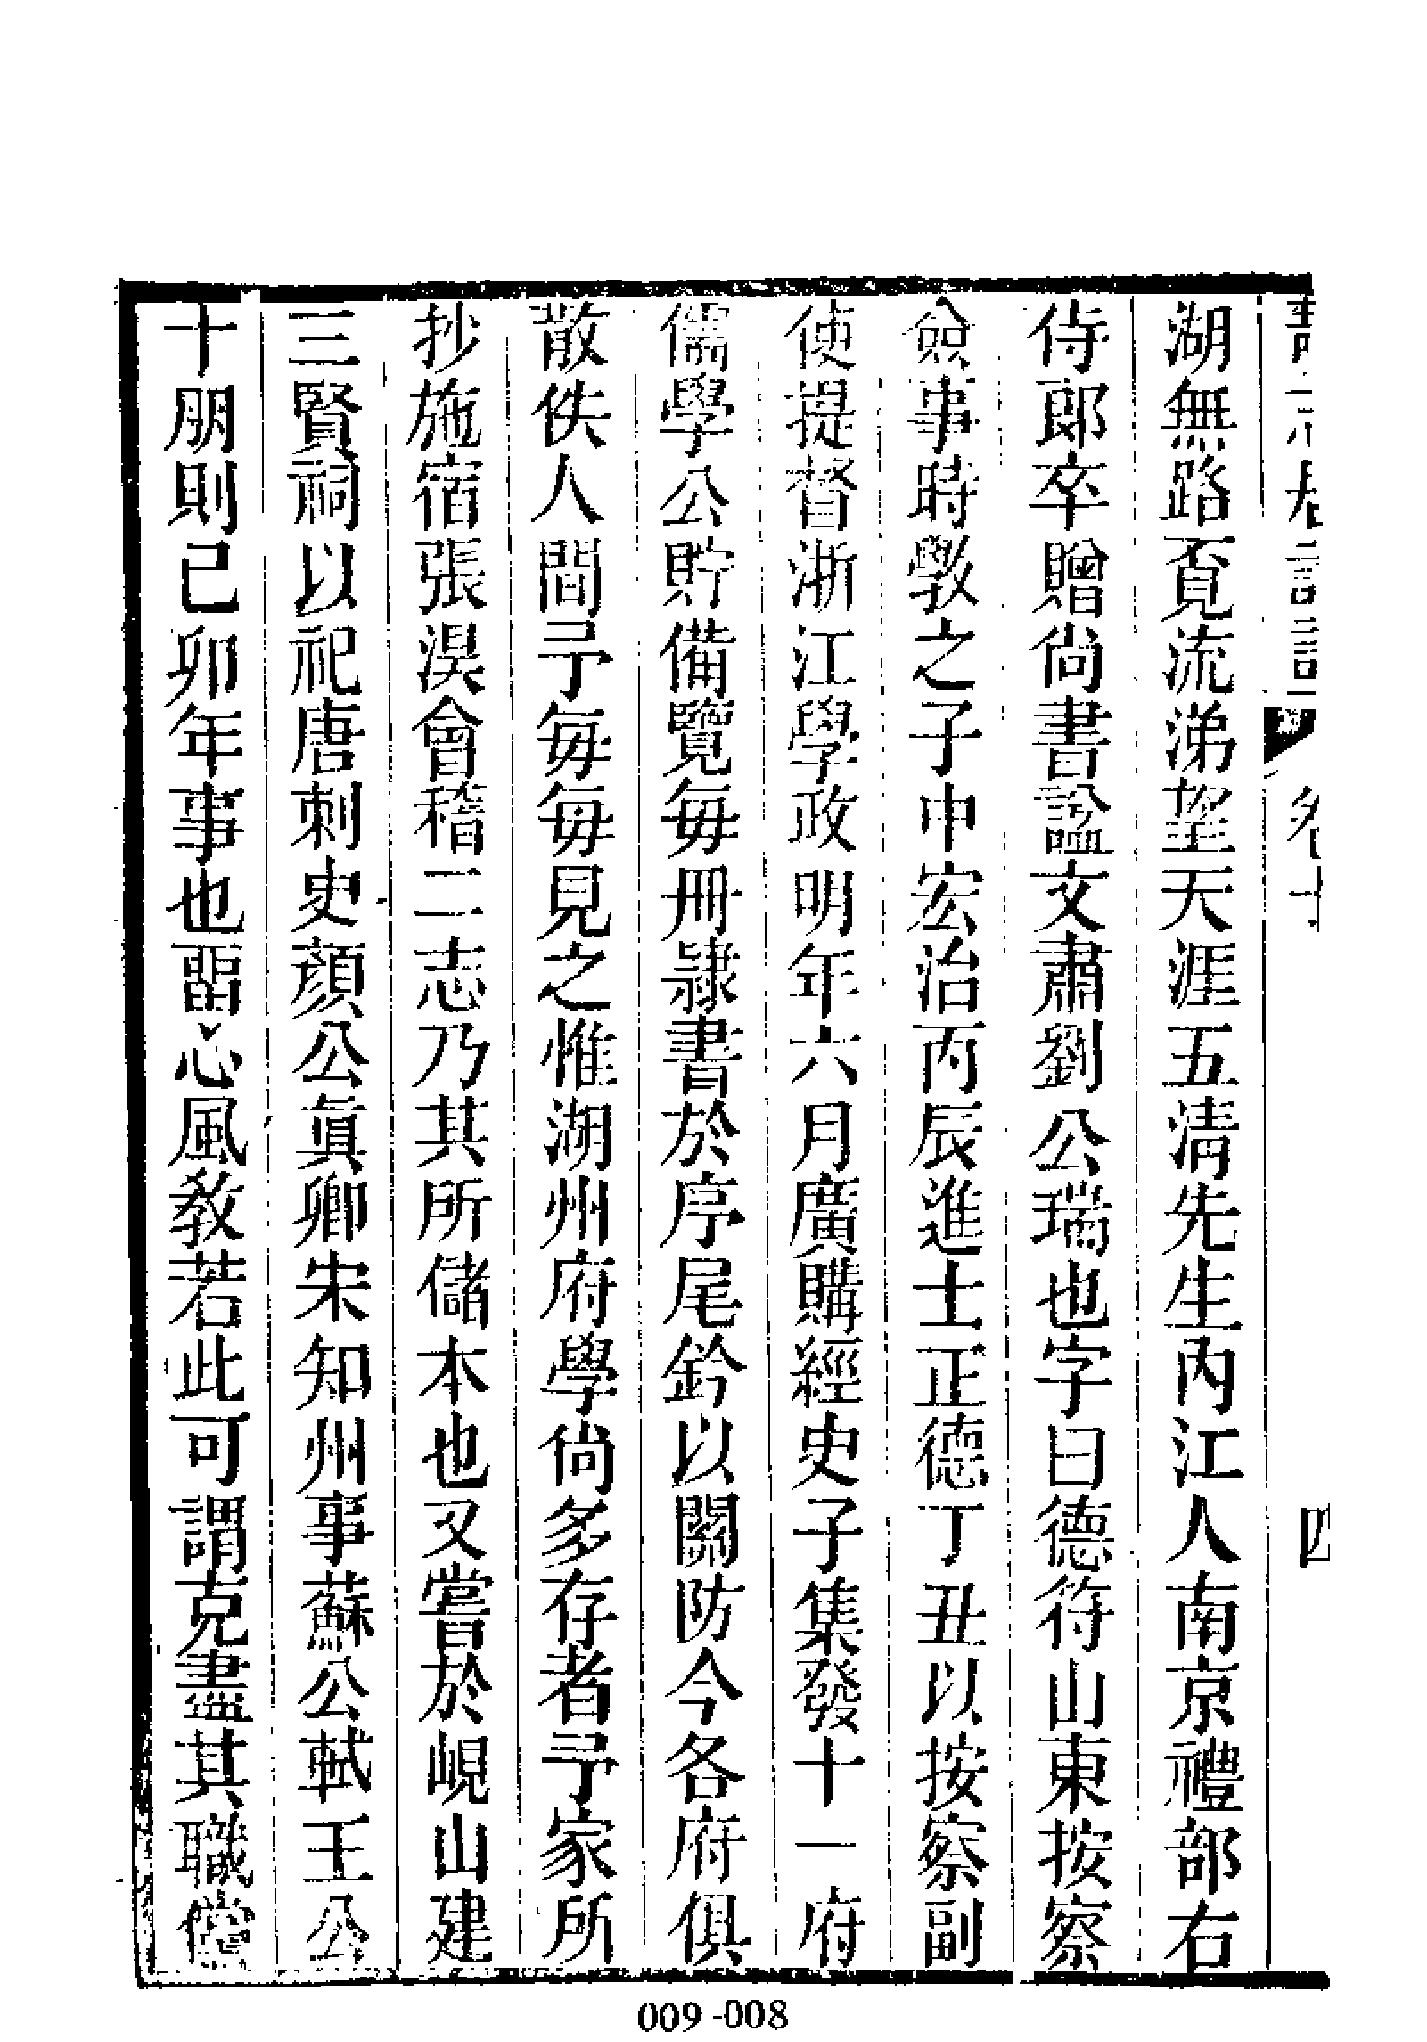 湖無路覔流涕望天涯五淸先生內江人南京禮部右
侍郎卒贈尙書諡文肅劉公瑞也字曰德符山東按察
僉事時斆之子中宏治丙辰進士正德丁丑以按察副
使提督浙江學政明年六月廣購經史子集發十一府
儒學公貯備覽每冊隷書於序尾鈐以關防今各府俱
散佚人間予每每見之惟湖州府學尙多存者予家所
抄施宿張淏會稽二志乃其所儲本也又嘗於峴山建
三賢祠以祀唐刺史顏公眞卿宋知州事蘇公軾王公
十朋則己卯年事也畱心風敎若此可謂克盡其職儅
卷十
四
009-008